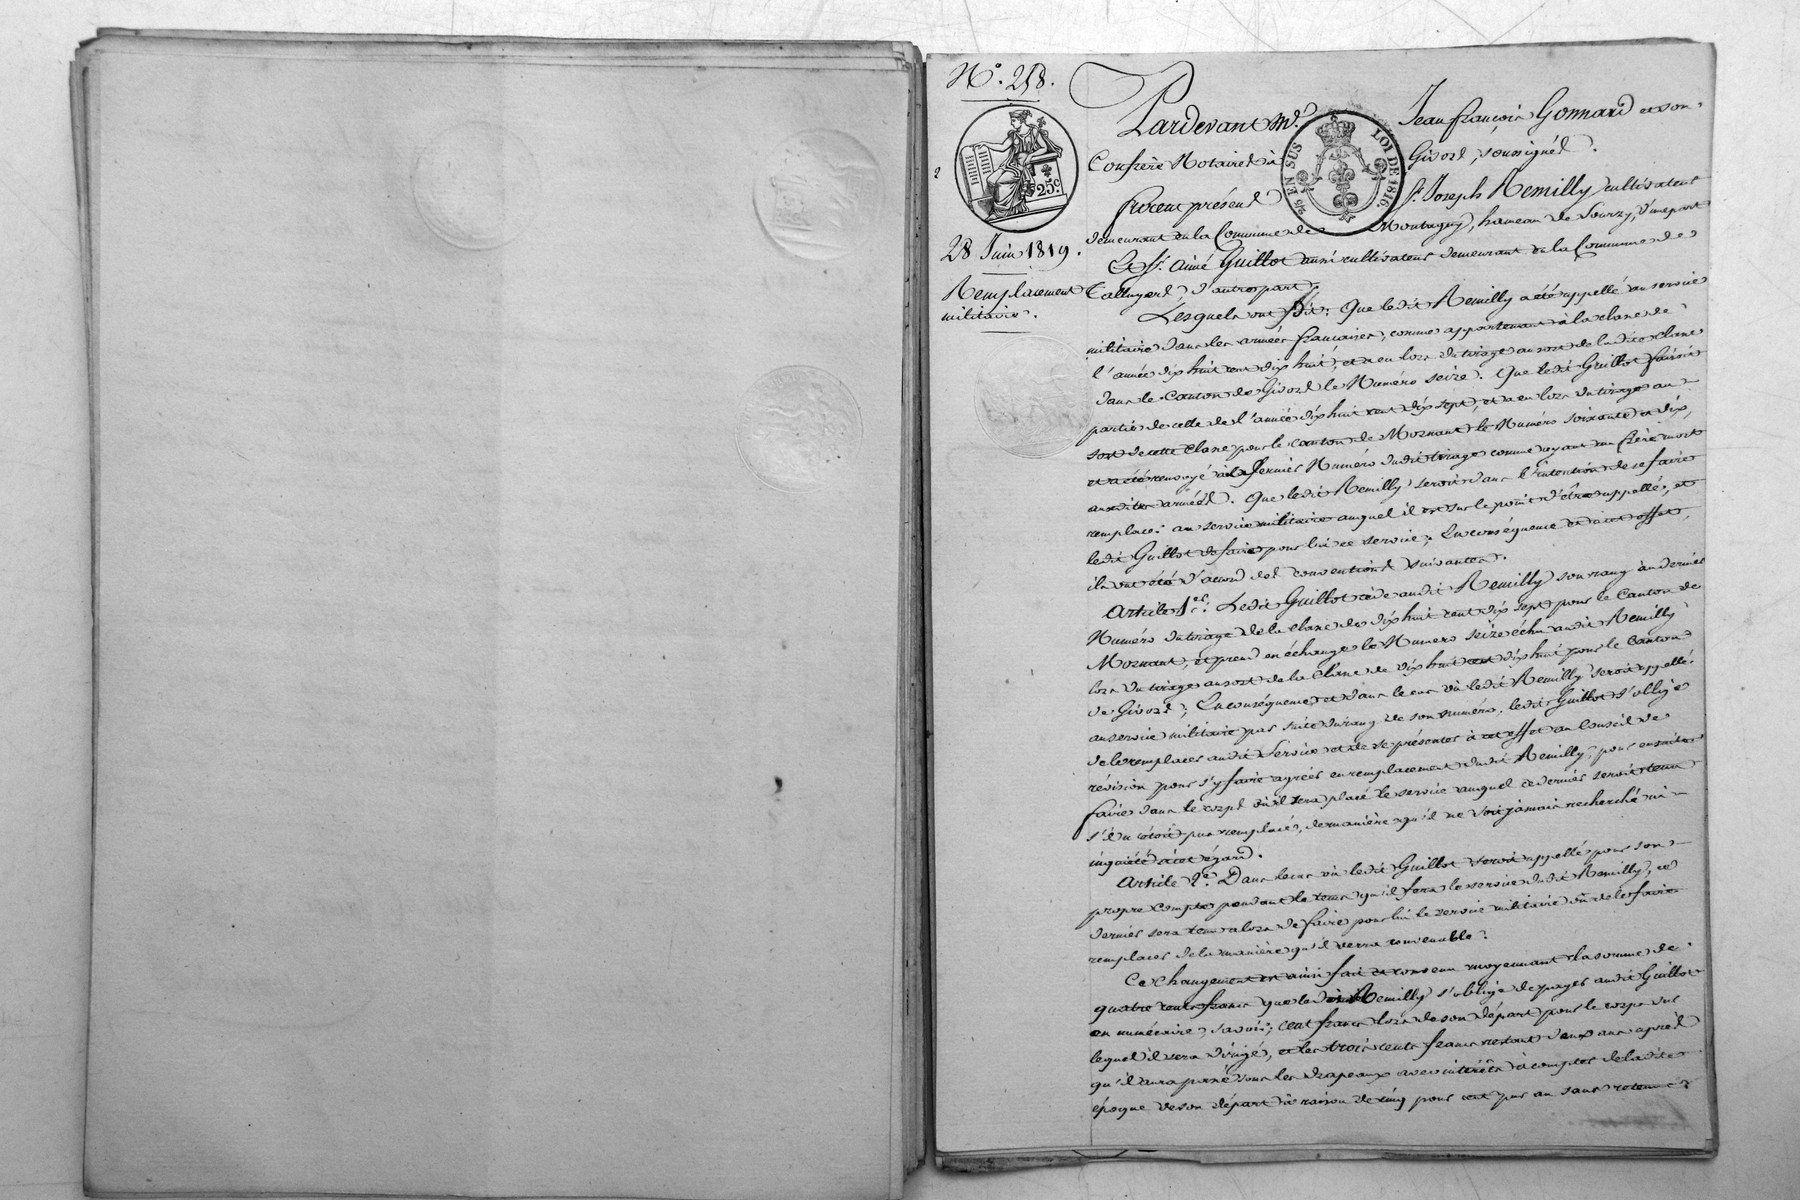 N.° 258.
25 c.
28 Juin 1819.
Remplacement
militaire.
Pardevant M.e Jean françois Gonnard et son
EN SUS LOI DE 1816.
Confrère Notaires à Givors, soussignés.
furent présens S.r Joseph Remilly cultivateur
demeurant en la Commune de Montagny, hameau de Sourzy, d'une part
Et S.r Aimé Guillot aussi cultivateur demeurant en la Commune de
Talluyers d'autre part,
Lesquels ont dit: Que ledit Remilly a été appellé au service
militaire dans les armées françaises, comme appartenant à la classe de
l'année dix huit cent dix huit, et a eu lors du tirage au sort de la dite classe
dans le Canton de Givors le Numéro seize. Que ledit Guillot faisoit
partie de celle de l'année dix huit cent dix sept, et a eu lors du tirage au
sort de cette classe pour le canton de Mornant le Numéro soixante et dix,
et a été renvoyé au dernier Numéro dudit tirage comme ayant un frère mort
aux dites armées. Que ledit Remilly seroit dans l'intention de se faire
remplacer au service militaire auquel il est sur le point d'être appellé, et
ledit Guillot de faire pour lui ce service; En conséquence et à cet effet,
ils ont été d'accord des conventions suivantes.
Article 1.er Ledit Guillot cède audit Remilly son rang au dernier
Numéro du tirage de la classe de dix huit cent dix sept pour le Canton de
Mornant, et prend en échange le Numéro seize échu audit Remilly
lors du tirage au sort de la classe de dix huit cent dix huit pour le Canton
de Givors; En conséquence et dans le cas où ledit Remilly seroit appellé
au service militaire par suite du rang de son numéro, ledit Guillot s'oblige
de le remplacer audit Service et de se présenter à cet effet au Conseil de
révision pour s'y faire agréer en remplacement dudit Remilly, pour ensuite
faire dans le corps où il sera placé le service auquel ce dernier seroit tenu
s'il n'étoit pas remplacé, de manière qu'il ne soit jamais recherché ni
inquiété à cet égard.
Article 2.e Dans le cas où ledit Guillot seroit appellé pour son
propre compte pendant le tems qu'il fera le service dudit Remilly, ce
dernier sera tenu alors de faire pour lui le service militaire ou de le faire
remplacer de la manière qu'il verra convenable.
Ce changement est ainsi fait et convenu moyennant la somme de
quatre cents francs que ledit Remilly s'oblige de payer audit Guillot
en numéraire, savoir; cent francs lors de son départ pour le corps sur
lequel il sera dirigé, et les trois cents francs restant deux ans après
qu'il aura passé sous les drapeaux avec intérêts à compter de la dite
époque de son départ à raison de cinq pour cent par an sans retenue